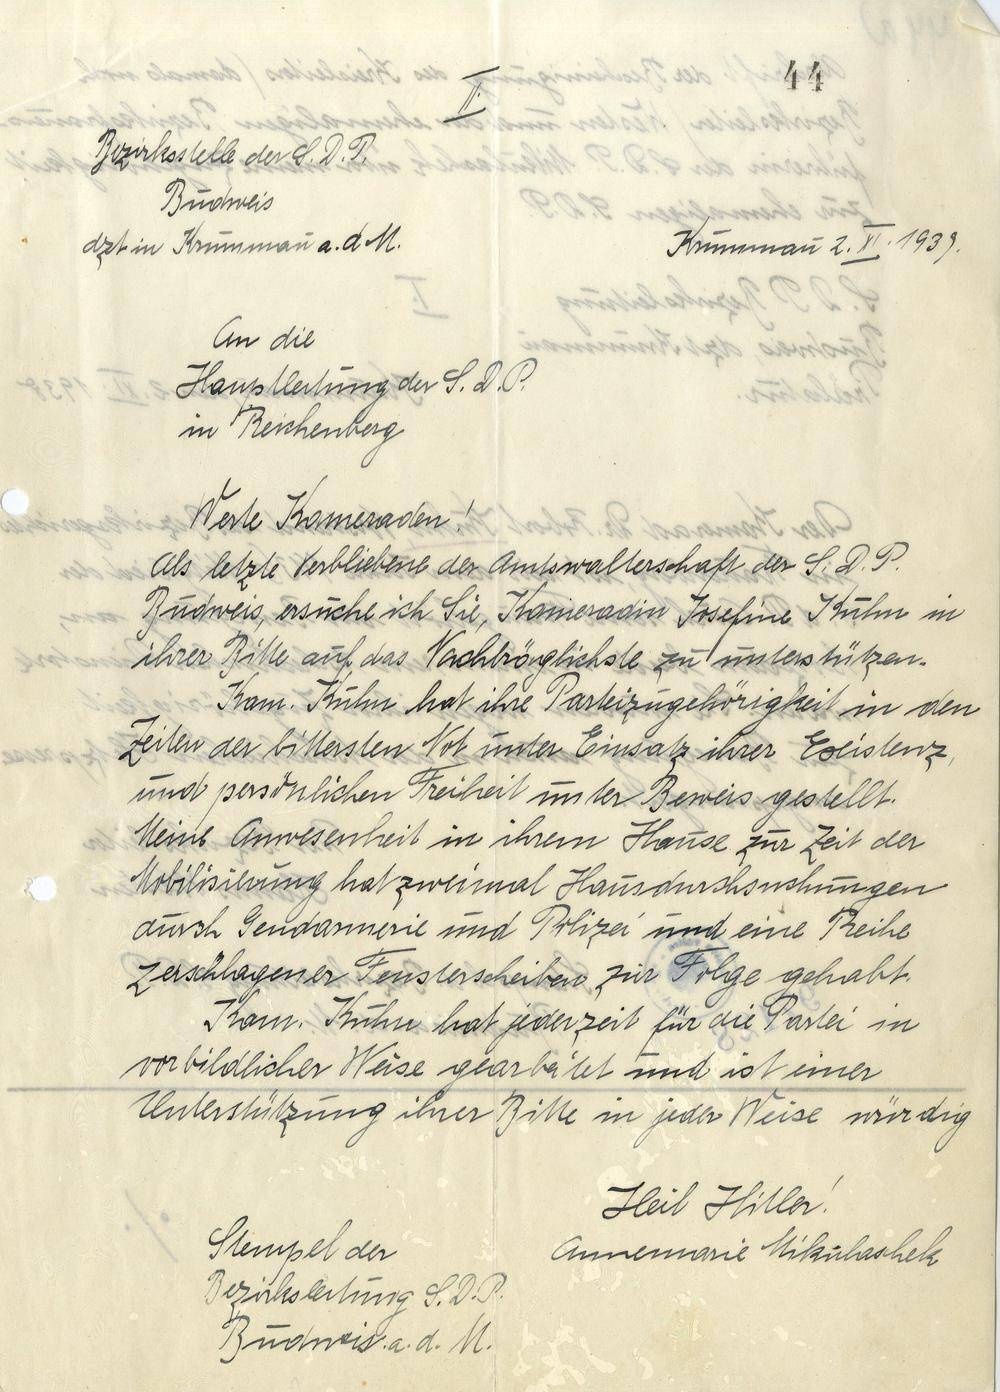 44
II.
Bezirksstelle der S.D.P.
Budweis
dzt in Krummau a. d M.
Krummau 2. XI. 1939.
An die
Hauptleitung der S. D. P.
in Reichenberg
Werte Kameraden!
Als letzte Verbliebene der Amtswalterschaft der S. D. P.
Budweis, ersuche ich Sie, Kameradin Josefine Kuhn in
ihrer Bitte auf das Nachträglichste zu unterstützen.
Kam. Kuhn hat ihre Parteizugehörigkeit in den
Zeiten der bittersten Not unter Einsatz ihrer Existenz,
und persönlichen Freiheit unter Beweis gestellt.
Meine Anwesenheit in ihrem Hause zur Zeit der
Mobilisierung hat zweimal Hausdurchsuchungen
durch Gendarmerie und Polizei und eine Reihe
zerschlagener Fensterscheiben zur Folge gehabt.
Kam. Kuhn hat jederzeit für die Partei in
vorbildlicher Weise gearbeitet und ist einer
Unterstützung ihrer Bitte in jeder Weise würdig
Heil Hitler!
Annemarie Mikulashek
Stempel der
Bezirksleitung S.D.P.
Budweis a. d. M.